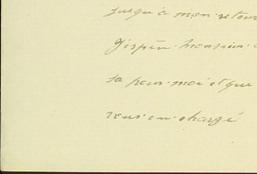 jusqu'à mon retour
J'espère Monsieur
sa pour moi et que
vous en chargé